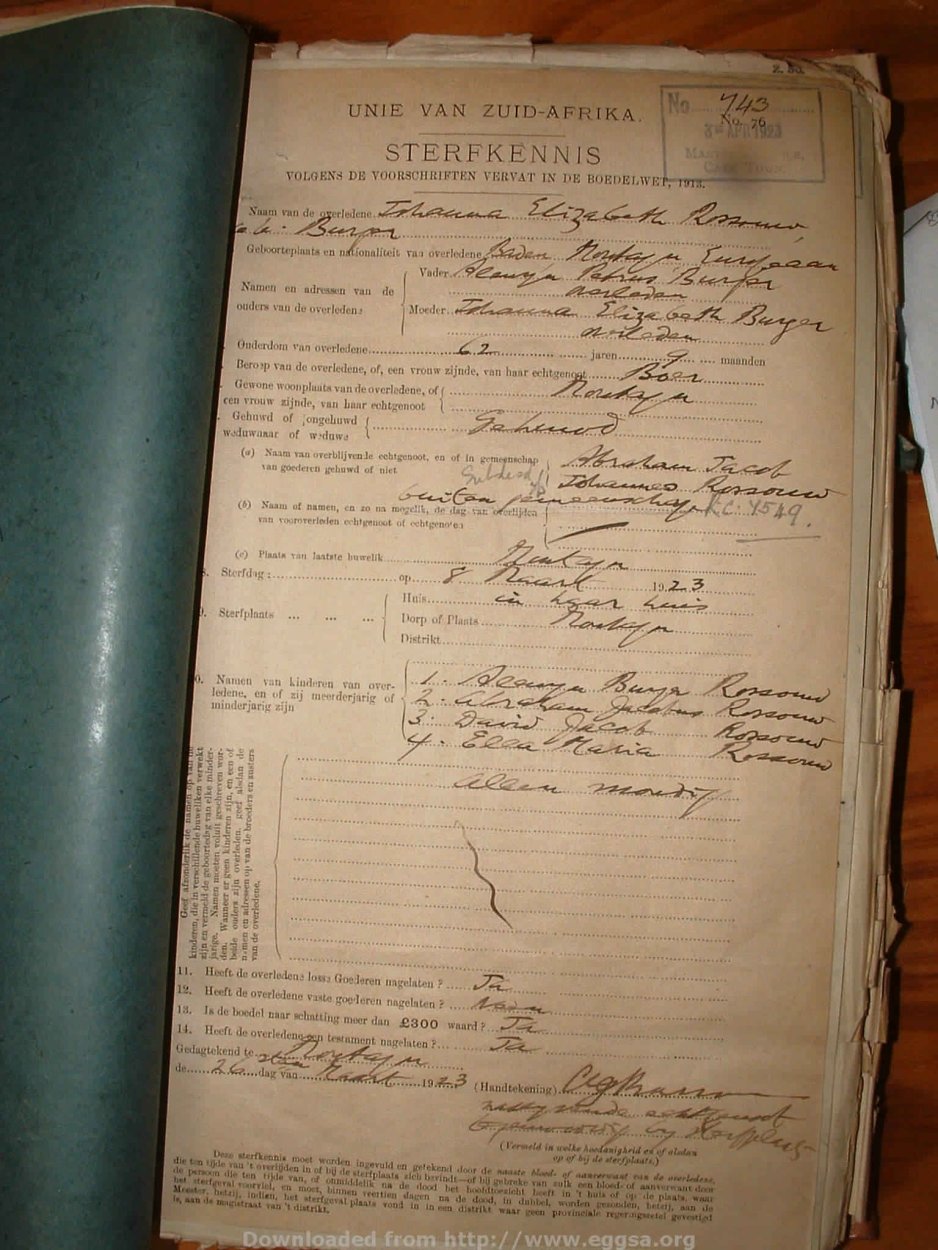 Z. 30.
No. 743
No. 76
3RD APR 1923
UNIE VAN ZUID-AFRIKA.
STERFKENNIS
VOLGENS DE VOORSCHRIFTEN VERVAT IN DE BOEDELWET, 1913.
Naam van de overledene Johanna Elizabeth Rossouw,
Burger
Geboorteplaats en nationaliteit van overledene Baden Montagu European
Namen en adressen van de ouders van de overledene
Vader Alewyn Petrus Burger
overleden
Moeder Johanna Elizabeth Burger
overleden
Ouderdom van overledene 62 jaren 9 maanden
Beroep van de overledene, of, een vrouw zijnde, van haar echtgenoot Boer
Gewone woonplaats van de overledene, of Montagu
een vrouw zijnde, van haar echtgenoot
Gehuwd of ongehuwd
weduwnaar of weduwe Gehuwd
(a) Naam van overblijvende echtgenoot, en of in gemeenschap Abraham Jacob
van goederen gehuwd of niet Johannes Rossouw
buiten gemeenschap
(b) Naam of namen, en zo na mogelik, de dag van overlijden
van vooroverleden echtgenoot of echtgenoten
(c) Plaats van laatste huwelik Montagu
8. Sterfdag: op 8 Maart 1923
9. Sterfplaats
Huis in haar huis
Dorp of Plaats Montagu
Distrikt
10. Namen van kinderen van overledene, en of zij meerderjarig of
minderjarig zijn
1. Alewyn Burger Rossouw
2. Abraham Jacobus Rossouw
3. David Jacob Rossouw
4. Ella Maria Rossouw
Allen mondig
Geef afzonderlik de namen op van de
kinderen, die in verschillende huweliken verwekt
zijn en vermeld de geboortedag van elke minderjarige. Namen moeten voluit geschreven worden. Wanneer er geen kinderen zijn, en een of
beide ouders zijn overleden, geef alsdan de
namen en adressen op van de broeders en zusters
van de overledene,
11. Heeft de overledene losse Goederen nagelaten? Ja
12. Heeft de overledene vaste goederen nagelaten? Neen
13. Is de boedel naar schatting meer dan £300 waard? Ja
14. Heeft de overledene een testament nagelaten? Ja
Gedagtekend te Montagu
de 26 sten dag van Maart 1923 (Handtekening)
(Vermeld in welke hoedanigheid en of alsdan
op of bij de sterfplaats.)
Deze sterfkennis moet worden ingevuld en getekend door de naaste bloed- of aanverwant van de overledene,
die ten tijde van 't overlijden in of bij de sterfplaats zich bevindt—of bij gebreke van zulk een bloed- of aanverwant door
de persoon die ten tijde van, of onmiddelik na de dood het hoofdtoezicht heeft in 't huis of op de plaats, waar
het sterfgeval voorviel, en moet, binnen veertien dagen na de dood, in dubbel, worden gezonden, hetzij, aan de
Meester, hetzij, indien, het sterfgeval plaats vond in een distrikt waar geen provinciale regeringszetel gevestigd
is, aan de magistraat van 't distrikt.
Downloaded from http://www.eggsa.org